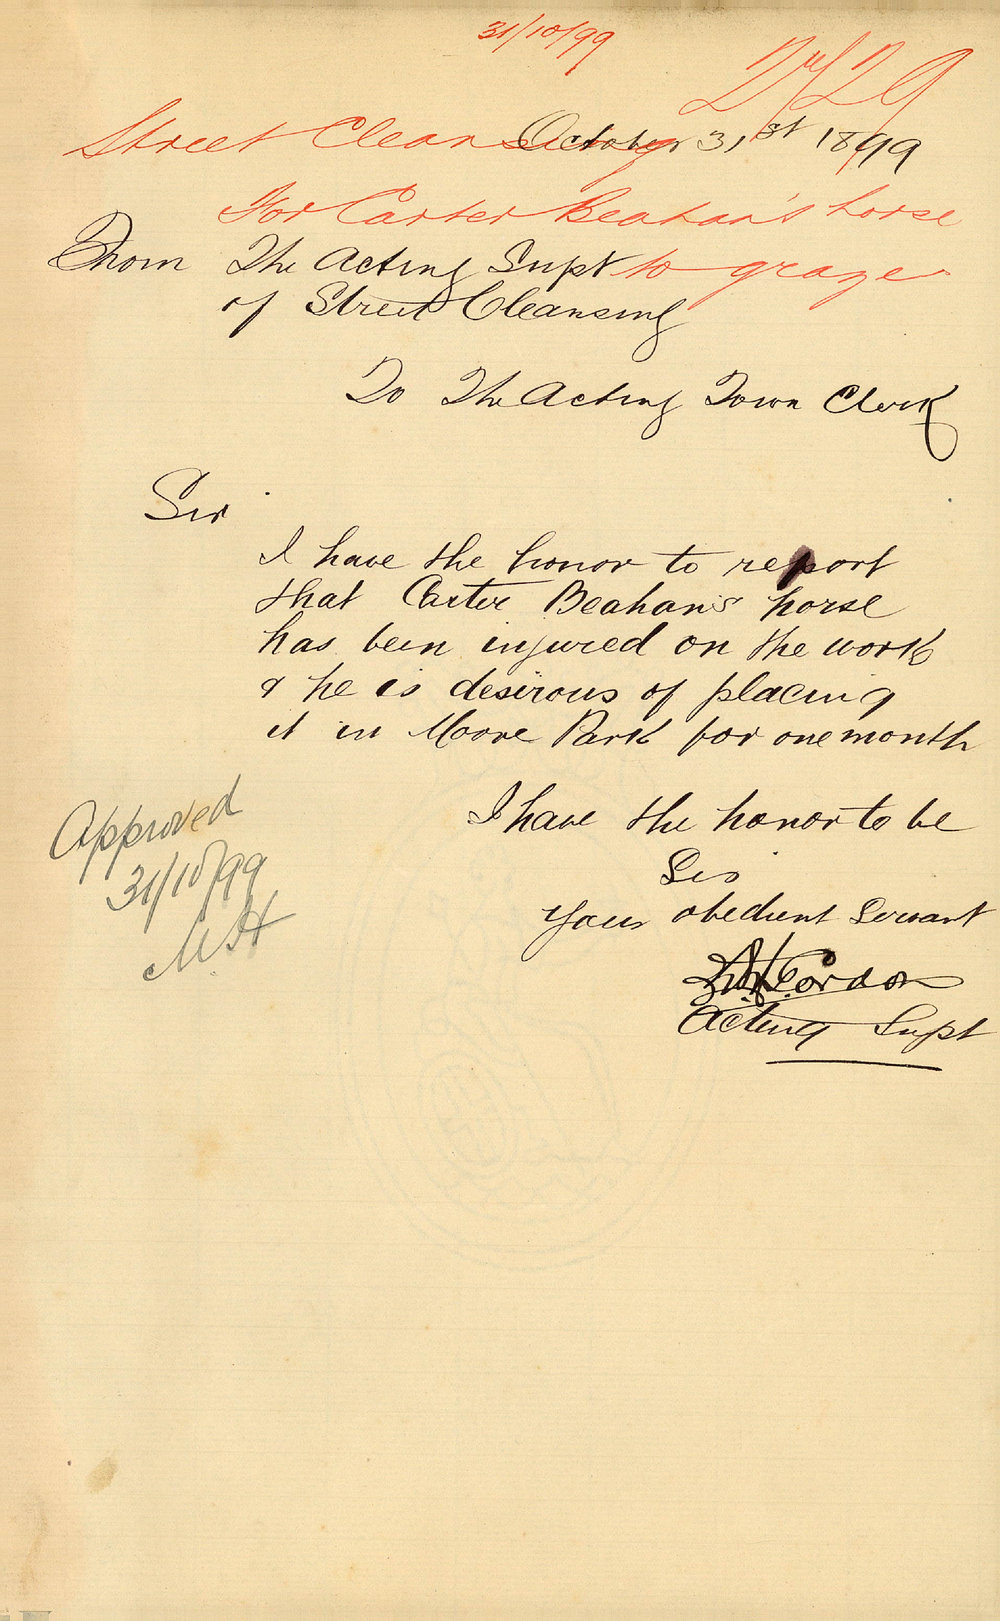 31/10/99
Street Cleansing
October 31st 1899
For Carter Beahan's horse
to graze
From The Acting Supt
of Street Cleansing
To The Acting Town Clerk
Sir
I have the honor to report
that Carter Beahan's horse
has been injured on the work
& he is desirous of placing
it in Moore Park for one month
Approved
31/10/99
I have the honor to be
Sir
Your obedient Servant
Gordon
Acting Supt